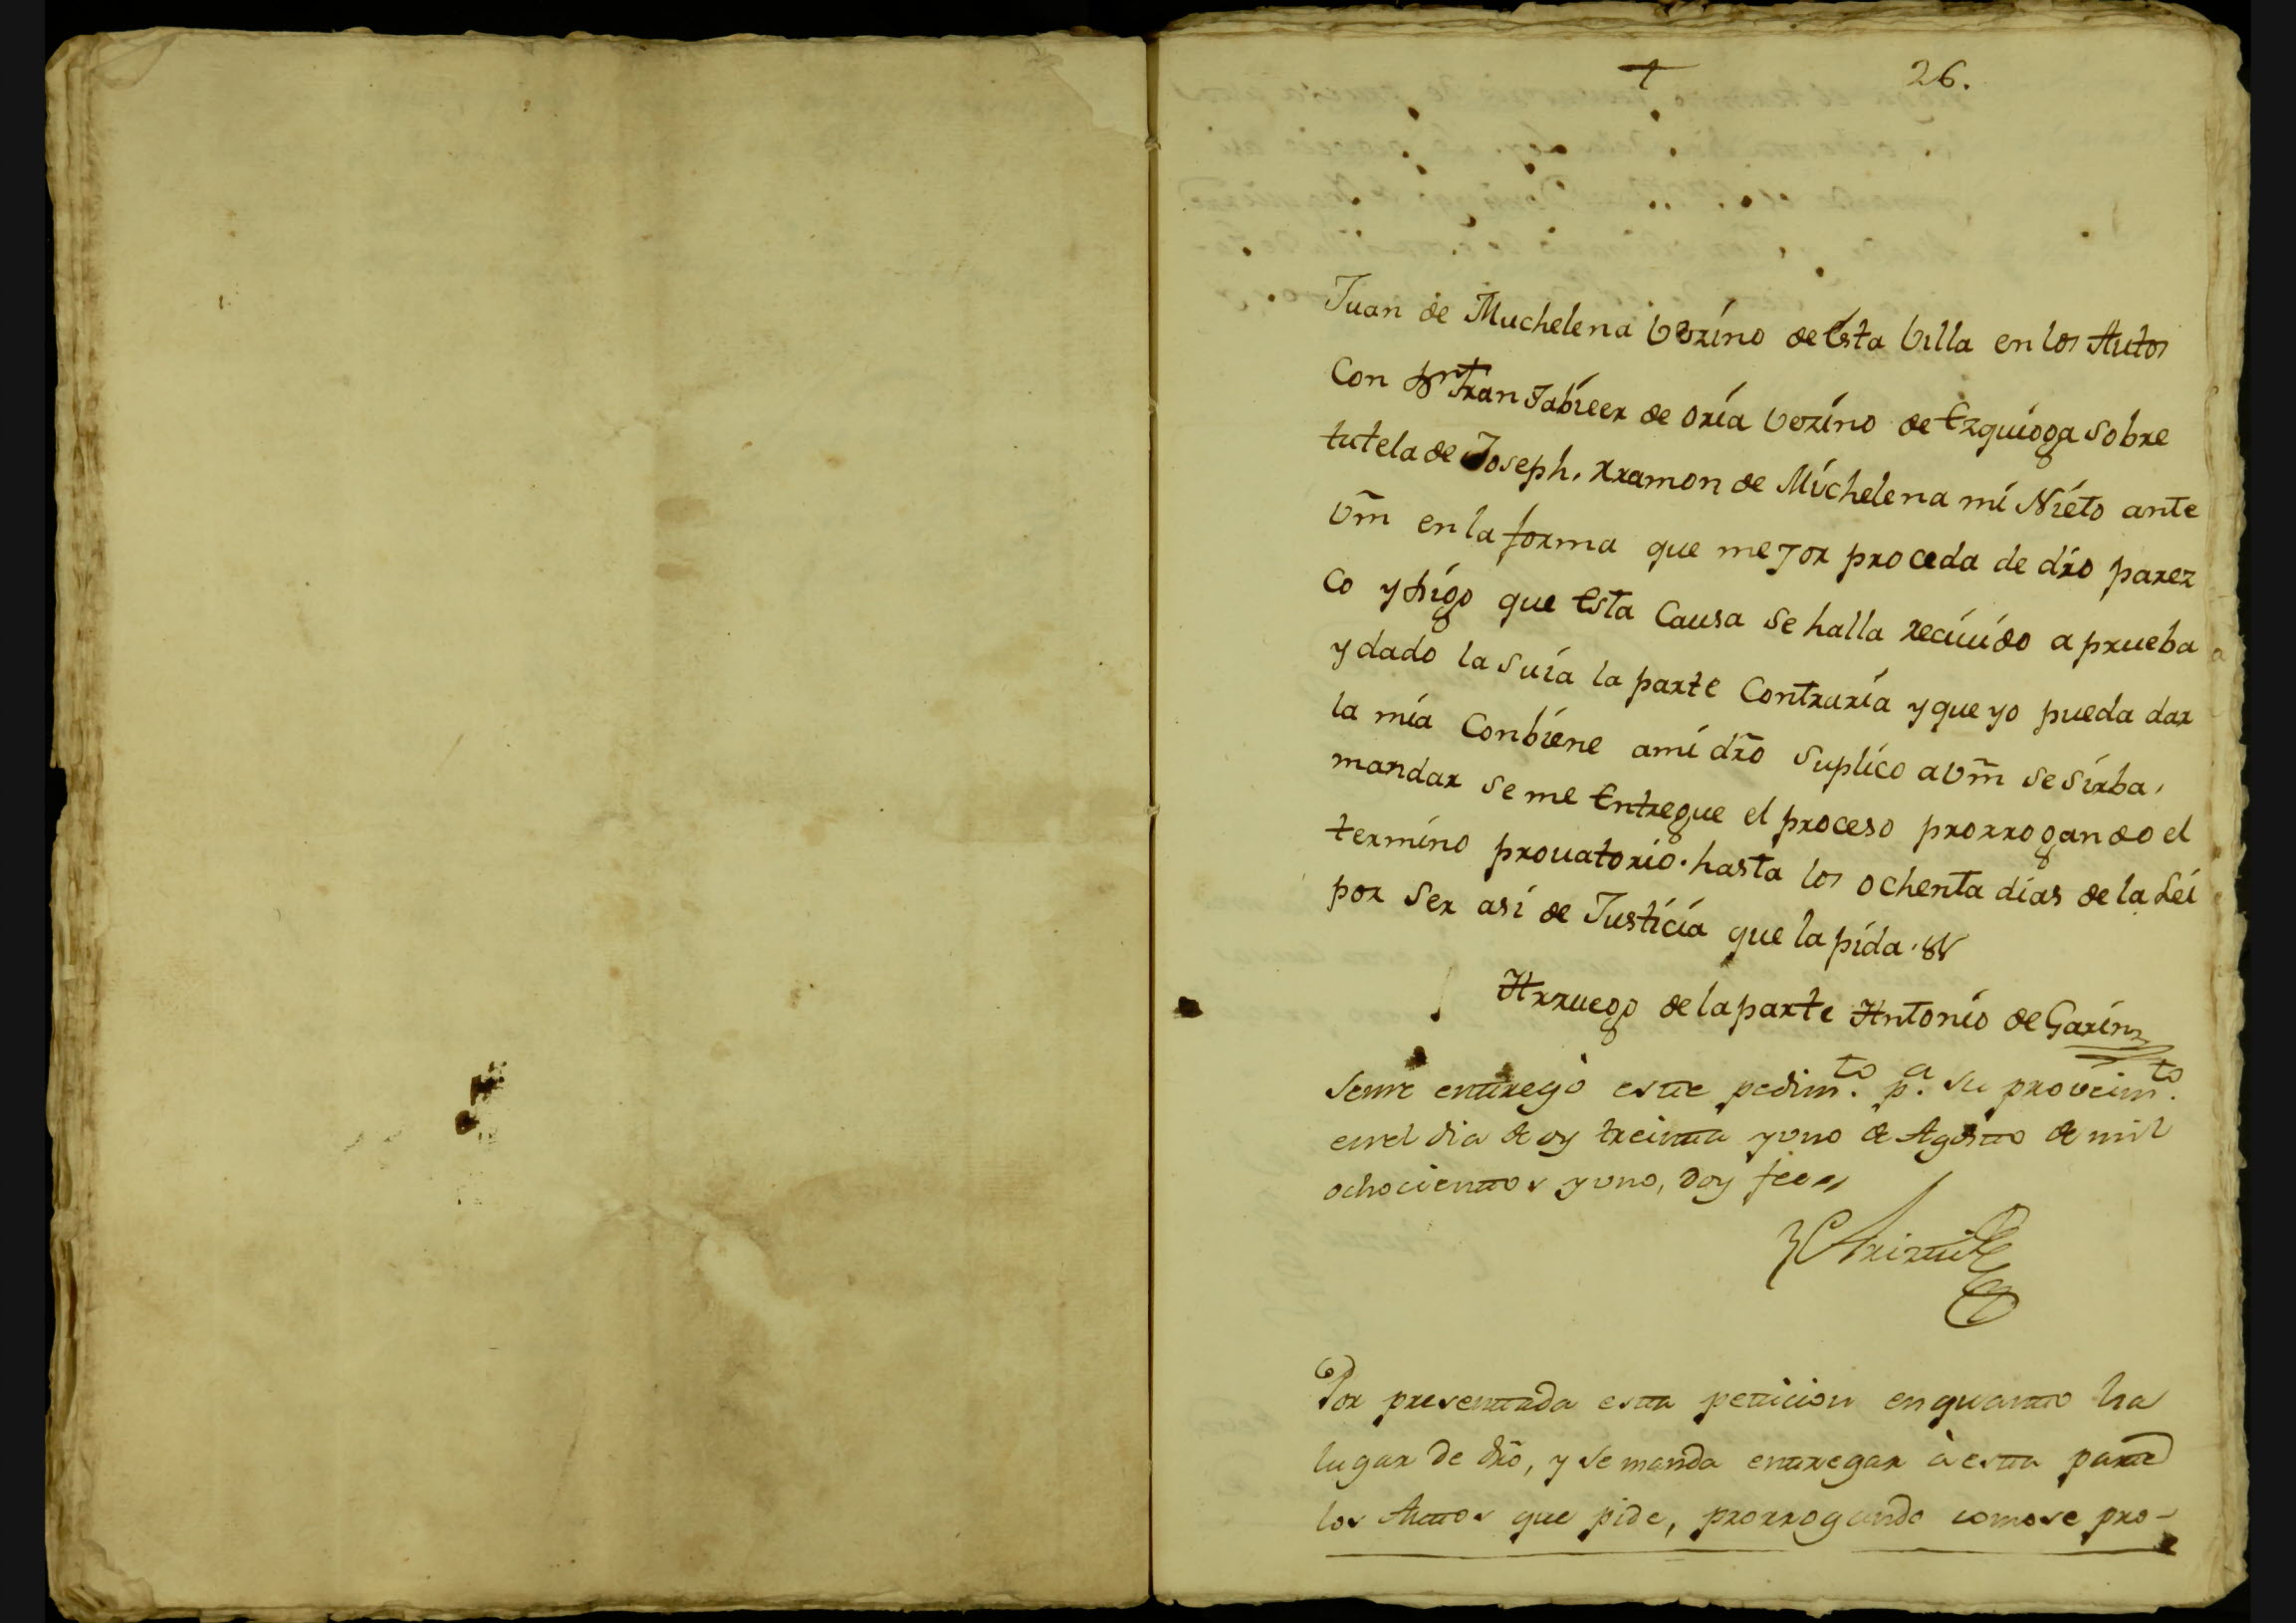 †
26.
Juan de Muchelena vezino de Esta Villa en los Autos
Con Dn Fran Jabieer de oria vezino de Ezquioga sobre
tutela de Joseph. Rramon de Michelena mi Nieto ante
Vm̃ en la forma que mejor proceda de dr̃o parez
co y Digo que Esta Causa se halla reciuido a prueba
y dado la suia la parte Contraria y que yo pueda dar
la mia Conbiene a mi dr̃o suplico a Vm̃ se sirba,
mandar se me Entregue el proceso prorrogando el
termino prouatorio. hasta los ochenta dias de la Lei
por ser asi de Justicia que la pida. &
Arruego de la parte Antonio de Garin
Seme entregó este pedim.to p.a su proveim.to
en el dia de oy treinta y uno de Agosto de mil
ochocientos y uno, doy fee
Arizti
Por presentada esta peticion en quanto ha
lugar de dr̃o, y se manda entregar à esta parte
los Autos que pide, prorrogando como se pro-